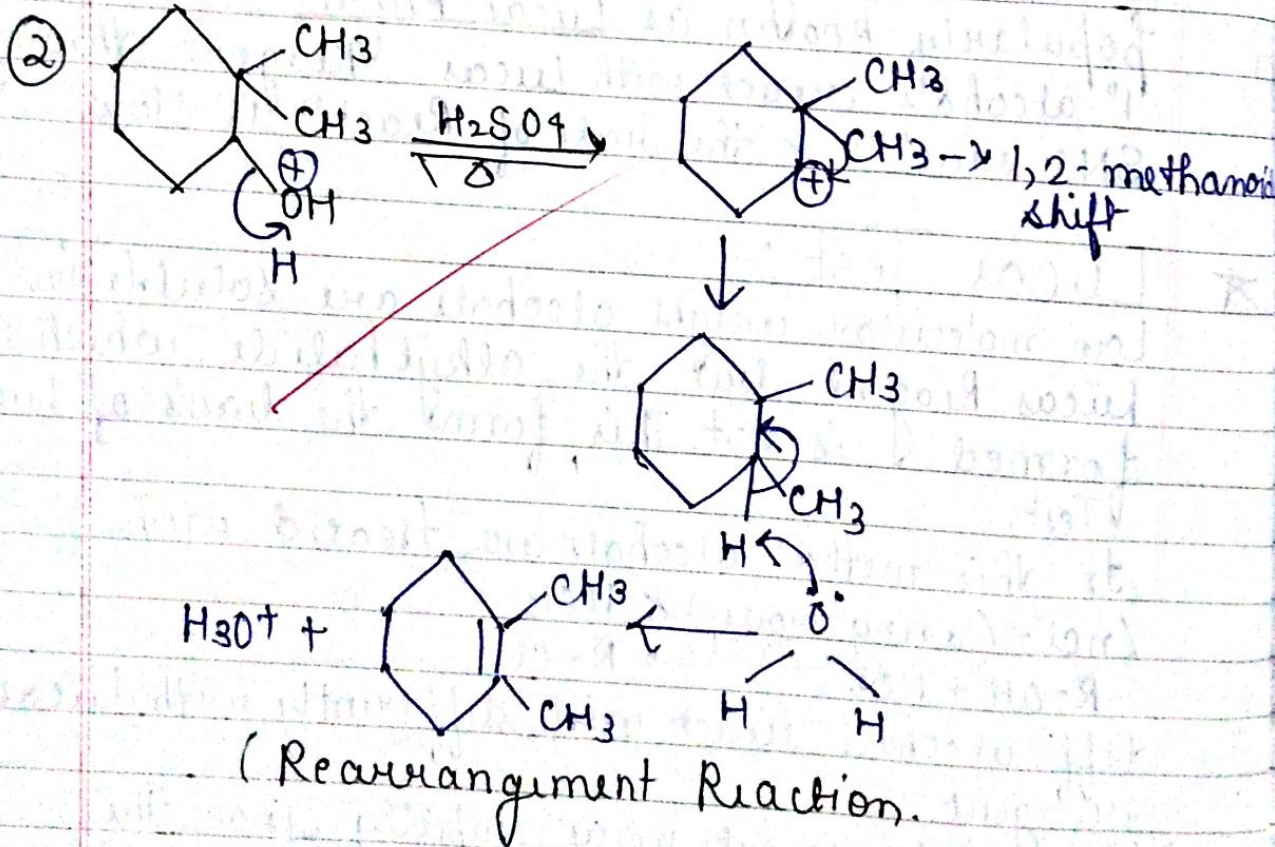 ②
CH3
CH3
⊕
OH
H
H2SO4
Δ
CH3
CH3 → 1,2- methanoid
shift
⊕
CH3
CH3
H
O
H H
H3O+ +
CH3
CH3
(Rearrangement Reaction.